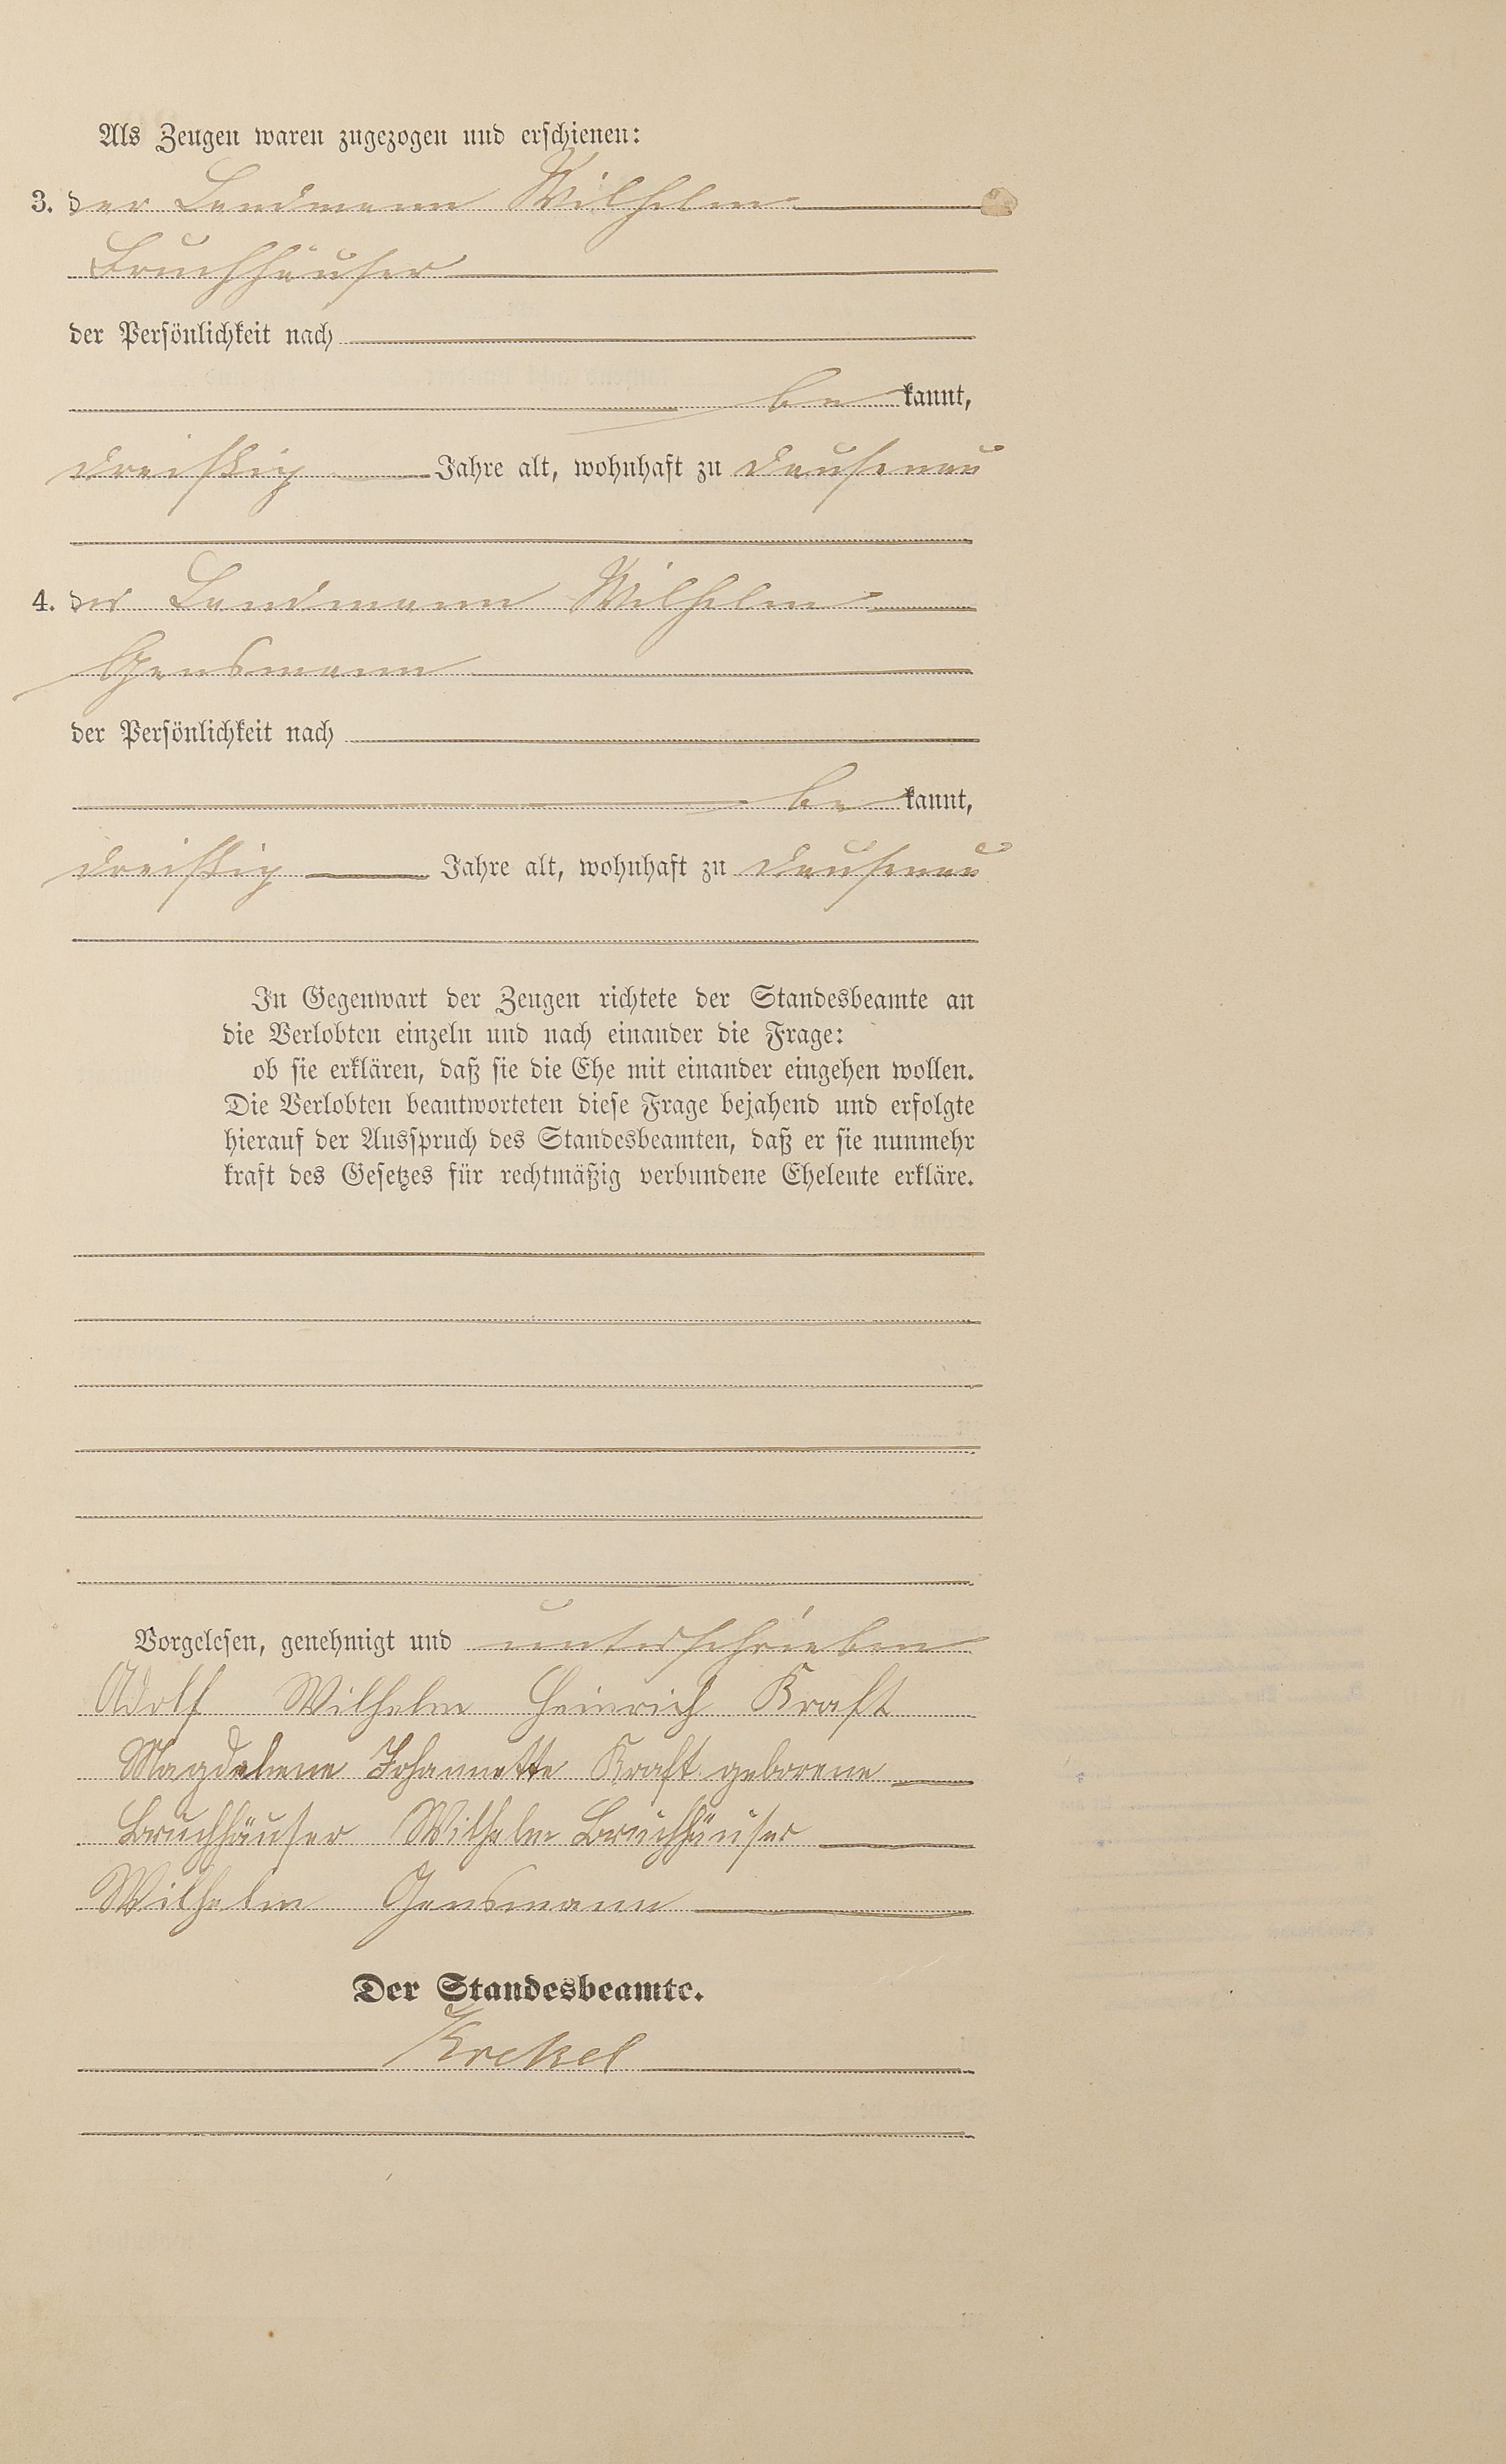 Als Zeugen waren zugezogen und erschienen:
3. der Landmann Wilhelm
Bruchhäuser
der Persönlichkeit nach
be kannt,
dreißig Jahre alt, wohnhaft zu Dausenau
4. der Landmann Wilhelm
Gensmann
der Persönlichkeit nach
be kannt,
dreißig Jahre alt, wohnhaft zu Dausenau
In Gegenwart der Zeugen richtete der Standesbeamte an
die Verlobten einzeln und nach einander die Frage:
ob sie erklären, daß sie die Ehe mit einander eingehen wollen.
Die Verlobten beantworteten diese Frage bejahend und erfolgte
hierauf der Ausspruch des Standesbeamten, daß er sie nunmehr
kraft des Gesetzes für rechtmäßig verbundene Eheleute erkläre.
Vorgelesen, genehmigt und unterschrieben
Adolf Wilhelm Heinrich Kraft
Magdalene Johannette Kraft geborene
Bruchhäuser Wilhelm Bruchhäuser
Wilhelm Gensmann
Der Standesbeamte.
Krekel